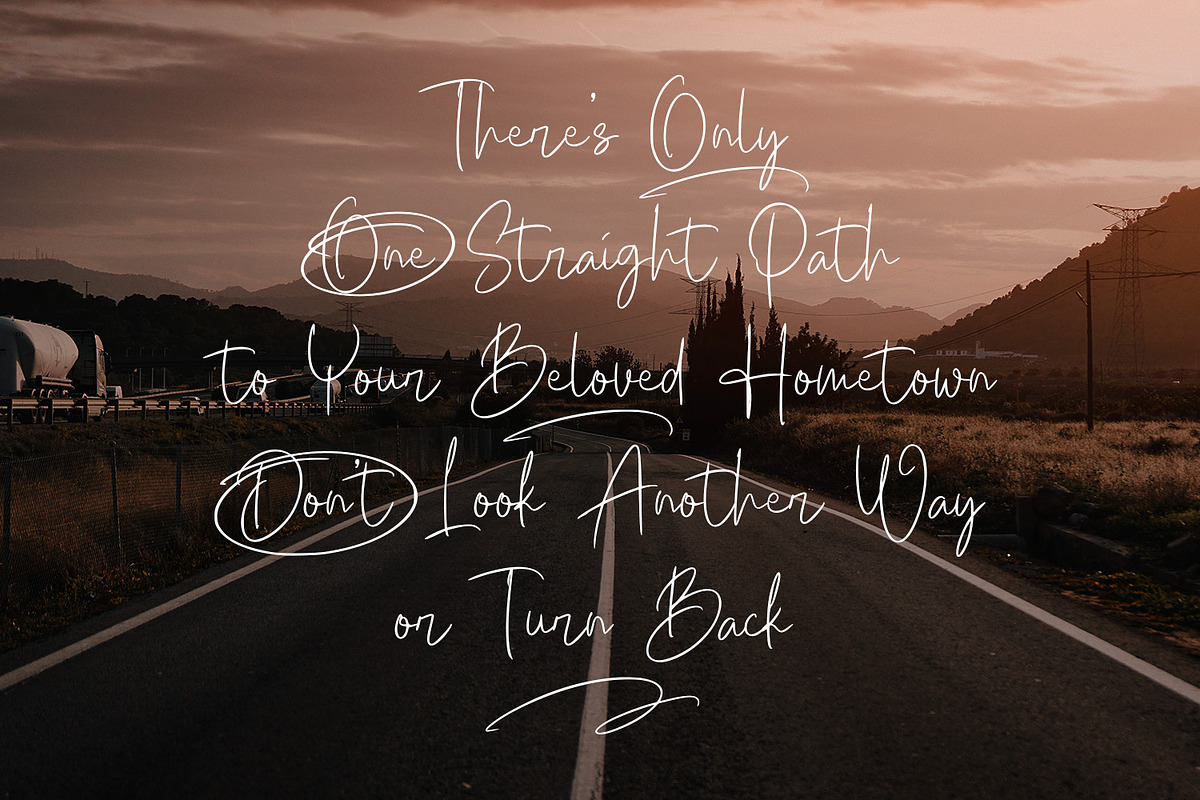 There's Only
One Straight Path
to Your Beloved Hometown
Don't Look Another Way
or Turn Back